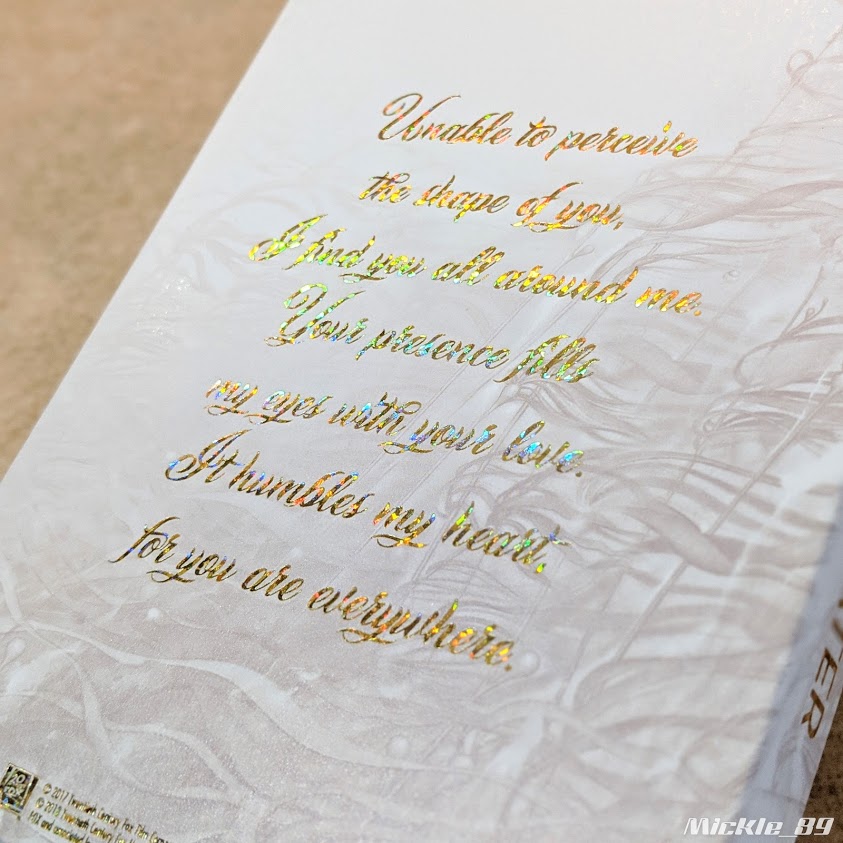 Unable to perceive
the shape of you,
I find you all around me.
Your presence fills
my eyes with your love.
It humbles my heart,
for you are everywhere.
TER
© 2017 Twentieth Century Fox Film
© 2018 Twentieth Century Fox
and associated
Mickle_89